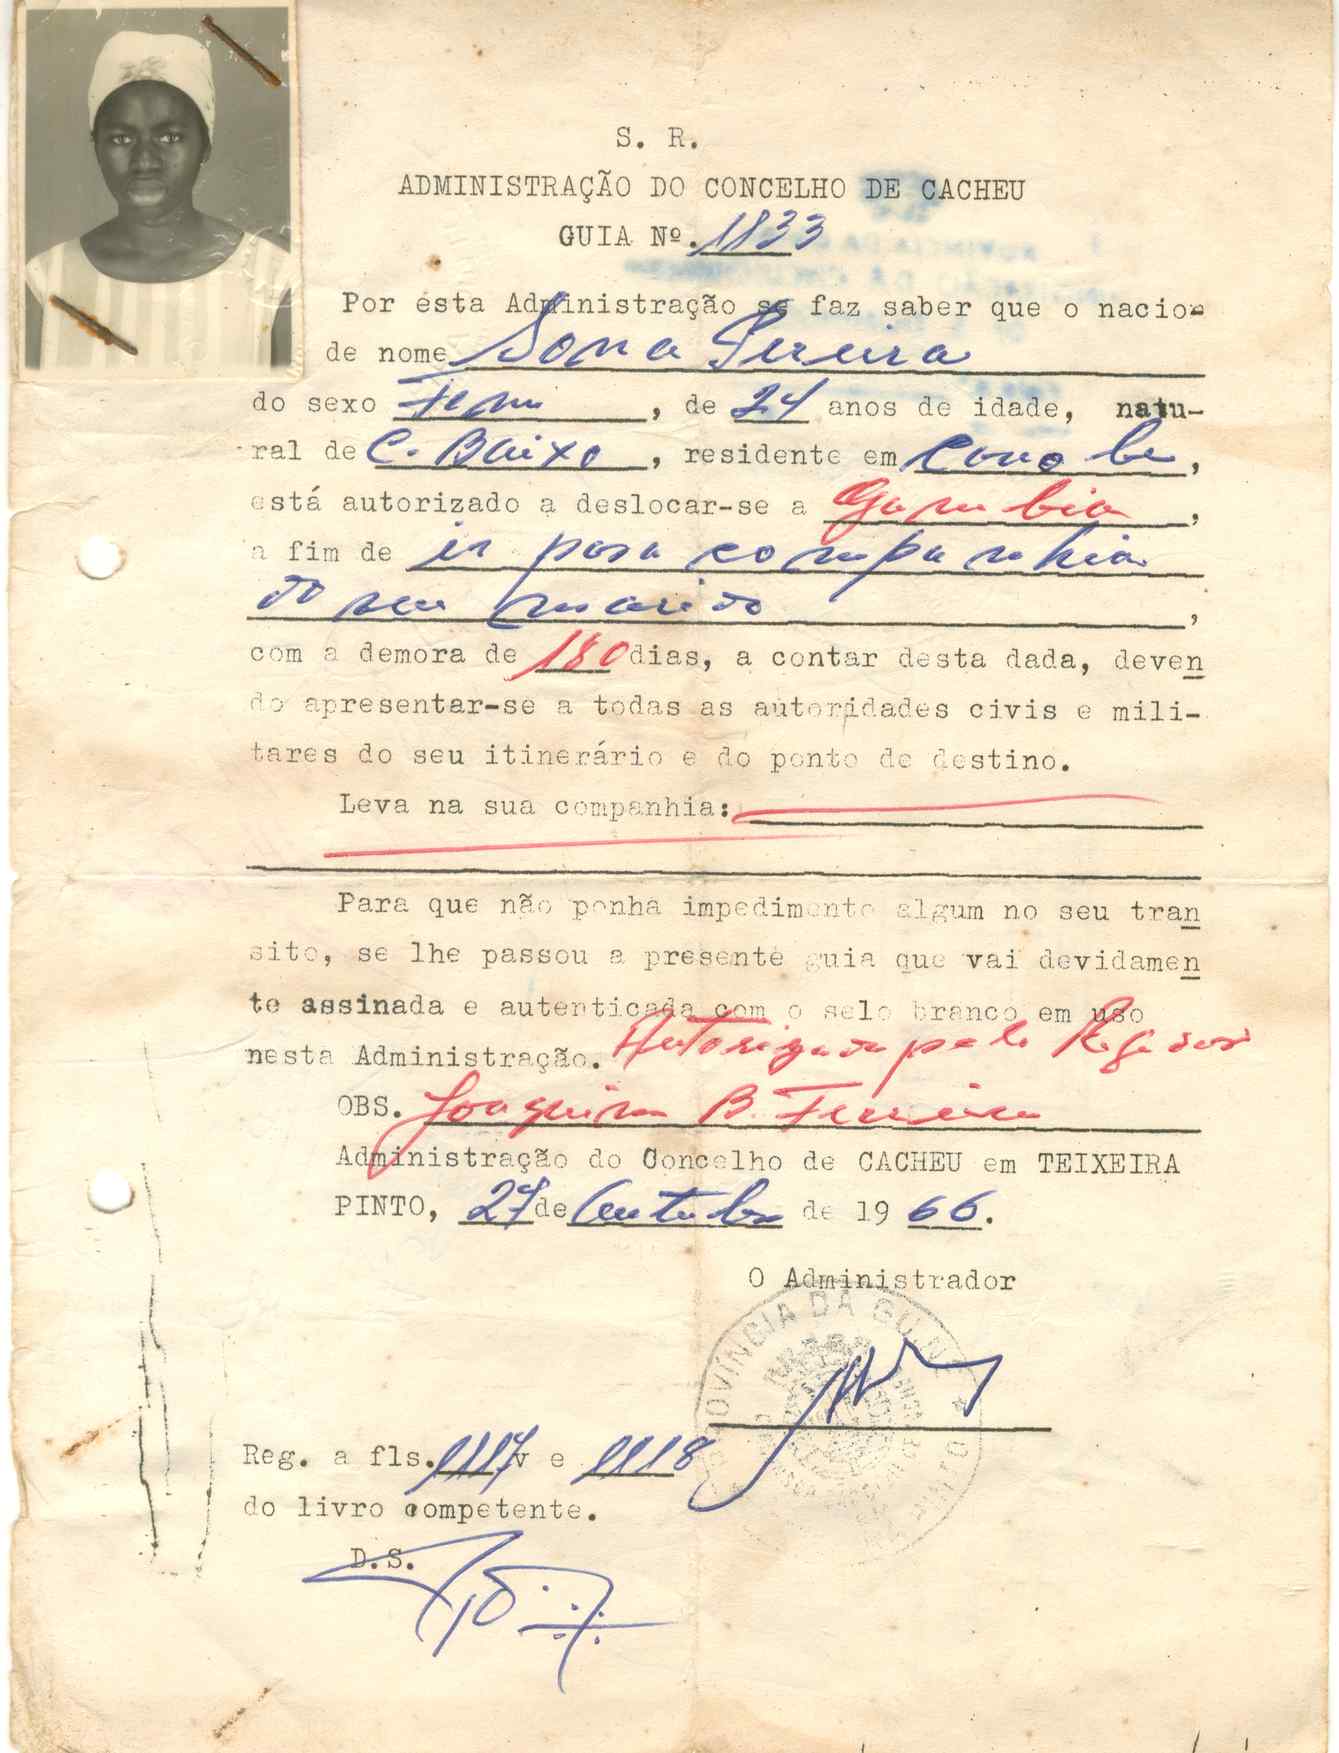 S. R.
ADMINISTRAÇÃO DO CONCELHO DE CACHEU
GUIA Nº. 1833
Por esta Administração se faz saber que o nacio-
de nome Sona Pereira
do sexo Fem , de 24 anos de idade, natu-
ral de C. Baixo , residente em ,
está autorizado a deslocar-se a Gambia ,
a fim de ir para companhia
do seu marido ,
com a demora de 180 dias, a contar desta dada, deven
do apresentar-se a todas as autoridades civis e mili-
tares do seu itinerário e do ponto de destino.
Leva na sua companhia:
Para que não ponha impedimento algum no seu tran
sito, se lhe passou a presente guia que vai devidamen
te assinada e autenticada com o selo branco em uso
nesta Administração. Autorizada pelo Regedor
OBS. Joaquim B. Ferreira
Administração do Concelho de CACHEU em TEIXEIRA
PINTO, 27 de Outubro de 19 66.
O Administrador
PROVÍNCIA DA GUINÉ
Reg. a fls. 1117 v e 1118
do livro competente.
D.S.